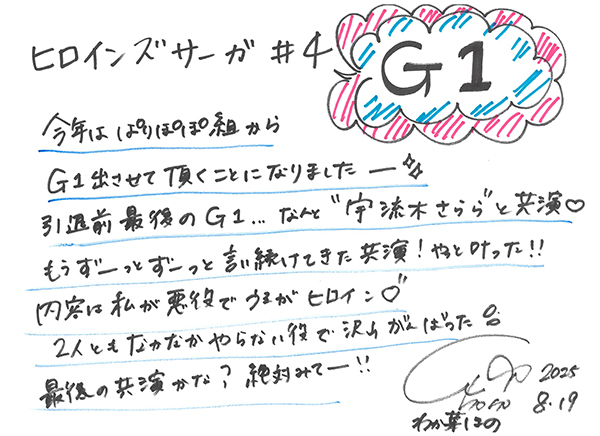 ヒロインズサーガ #4
G1
今年は ぱりぽぽぽ組から
G1出させて頂くことになりましたー✨
引退前最後のG1...なんと"宇流木さらら"と共演♡
もうずーっとずーっと言い続けてきた共演!やっと叶った!!
内容は私が悪役でうるがヒロイン♡
2人ともなかなかやらない役で沢山がんばった
最後の共演かな?絶対みてー!!
2025
8.19
わか菜ほの